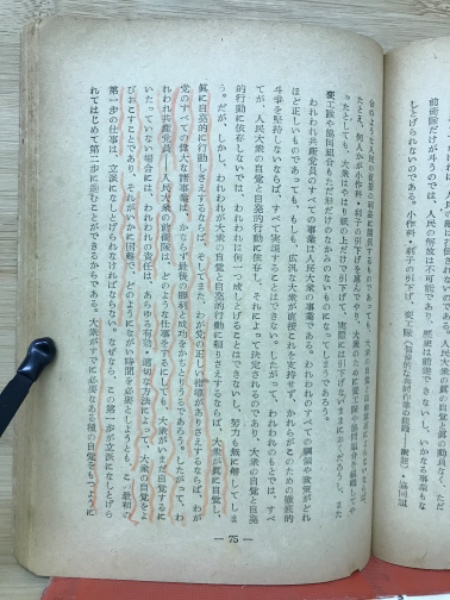 前衛隊だけが斗うのでは、人民の解放は不可能であり、歴史は前進できないし、いかなる事業もな
しとげられないのである。小作料・利子の引下げ、変工隊
協同組
合のような人民の直接の利益に關係するものであっても、大衆の自覺と
たとえ、何人かが小作料・利子の引下げを惠んでやり、大衆のために変工隊や協同組合を組織してや
ったとしても、大衆はやはり紙の上だけで引下げて、実際には引下げないままにおくだろうし、また
変工隊や協同組合もただ形だけのなかみのないものになってしまうであろう。
われわれ共産党員のすべての事業は人民大衆の事業である。われわれのすべての綱領や政策がどれ
ほど正しいものであっても、もしも、広汎な大衆が直接これを支持せず、かれらがこのための徹底的
斗爭を堅持しないならば、すべて実現することはできない。したがって、われわれのものごとは、す
べてが、人民大衆の自覺と自発的行動に依存し、それによって決定されるのであり、大衆の自覺と自発
的行動に依存しないでは、われわれは何一つ成しとげることはできないし、努力も無に帰してしま
う。だが、しかし、われわれが大衆の自覺と自発的行動に頼りさえするならば、大衆が眞に自覺し、
眞に自発的に行動しさえするならば、そしてまた、わが党の正しい指導がありさえするならば、わが
党のすべての偉大な諸事業は、かならず最後の勝利と成功をかちとりうるであろう。したがって、わ
れわれ共産党員——人民大衆の前衛隊は、どのような仕事をするにしても、大衆がいまだ自覺するに
いたっていない場合には、われわれの責任は、あらゆる有効・適切な方法によって、大衆の自覺をよ
びおこすことであり、それがいかに困難で、どのようにながい時間を必要としようとも、この最初の
第一步の仕事は、立派になしとげられなければならない。なぜなら、この第一步が立派になしとげら
れてはじめて第二步に進むことができるからである。大衆がすでに必要なある種の自覺をもつように
— 75 —